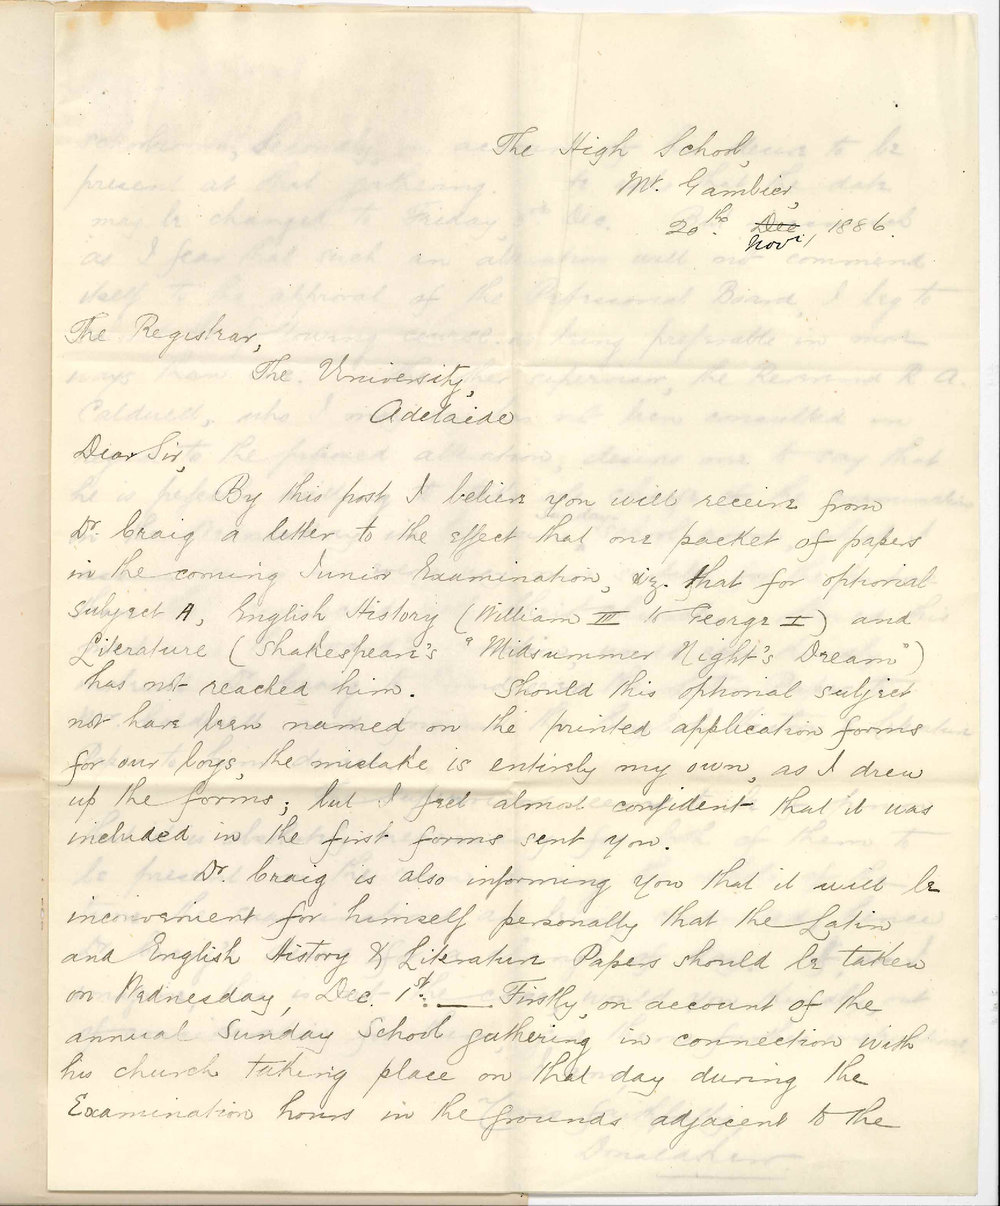 The High School,
Mt. Gambier,
20th. Dec Novr, 1886.
The Registrar,
The University,
Adelaide
Dear Sir,
By this post I believe you will receive from
Dr. Craig a letter to the effect that one packet of papers
in the coming Junior Examination, viz. that for optional
subject A, English History (William III to George I) and
Literature (Shakespeare's "Midsummer Night's Dream")
has not reached him. Should this optional subject
not have been named on the printed application forms
for our boys, the mistake is entirely my own, as I drew
up the forms; but I feel almost confident that it was
included in the first forms sent you.
Dr. Craig is also informing you that it will be
inconvenient for himself personally that the Latin
and English History & Literature Papers should be taken
on Wednesday, Dec. 1st. — Firstly, on account of the
annual Sunday School gathering in connection with
his church taking place on that day during the
Examination hours in the grounds adjacent to the